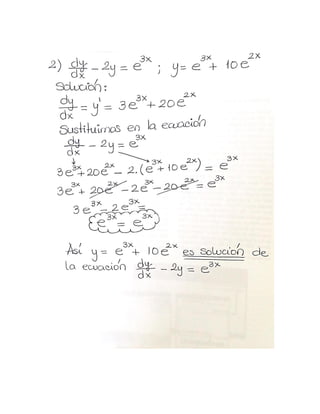 2) dy/dx - 2y = e^3x ; y = e^3x + 10e^2x
Solución:
dy/dx = y' = 3e^3x + 20e^2x
Sustituimos en la ecuación
dy/dx - 2y = e^3x
3e^3x + 20e^2x - 2.(e^3x + 10e^2x) = e^3x
3e^3x + 20e^2x - 2e^3x - 20e^2x = e^3x
3e^3x - 2e^3x =
e^3x = e^3x
Así y = e^3x + 10e^2x es solución de
la ecuación dy/dx - 2y = e^3x